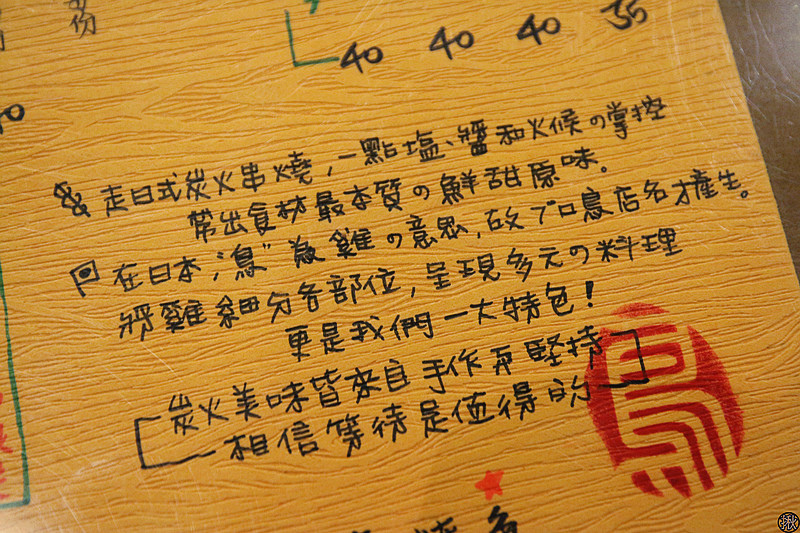 份
40 40 40 35
走日式炭火串燒,一點塩、醬和火候の掌控
帶出食材最本質の鮮甜原味。
在日本,"鳥"為雞の意思,故プロ鳥店名才產生。
將雞細分各部位,呈現多元の料理
更是我們一大特色!
炭火美味皆來自手作而堅持
相信等待是值得的
鳥